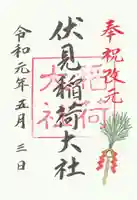 奉祝改元
伏見稲荷大社
令和元年五月三日
稲荷
大社